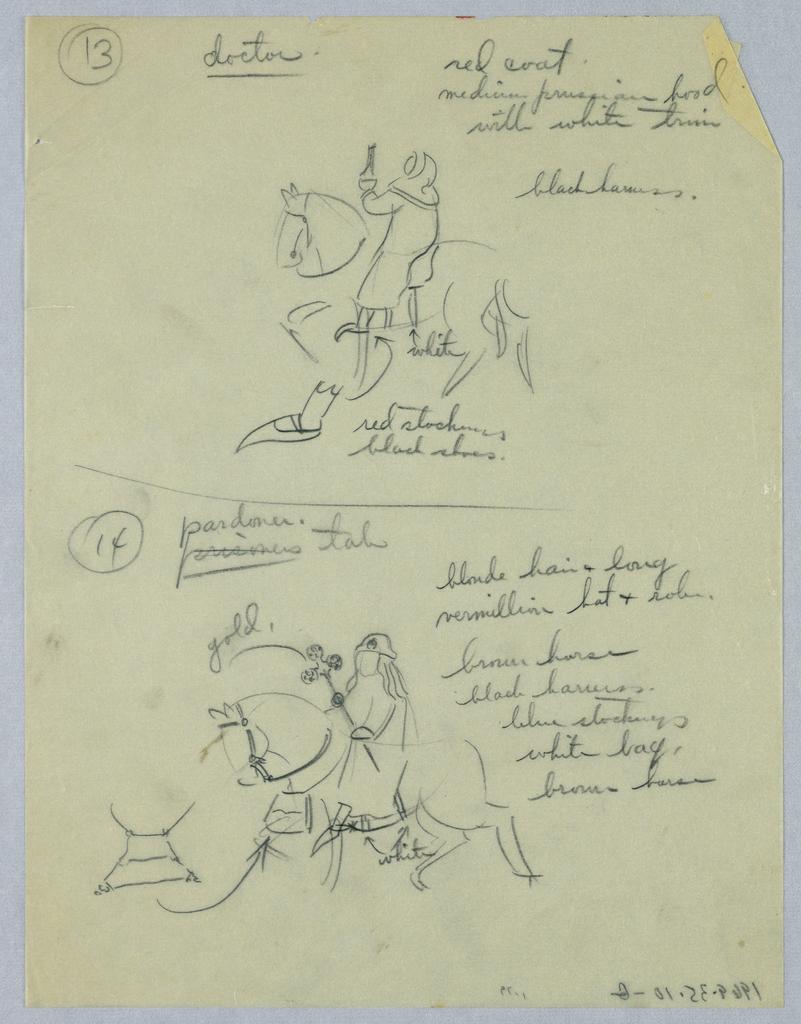 13
doctor.
red coat.
medium prussian hood
with white trim
black harness.
white
red stockings
black shoes.
14
pardoner.
prisoners tale
blonde hair + long
vermillion hat + robe.
gold.
brown horse
black harness.
blue stockings
white bag.
brown horse
white
1969.35.10-G